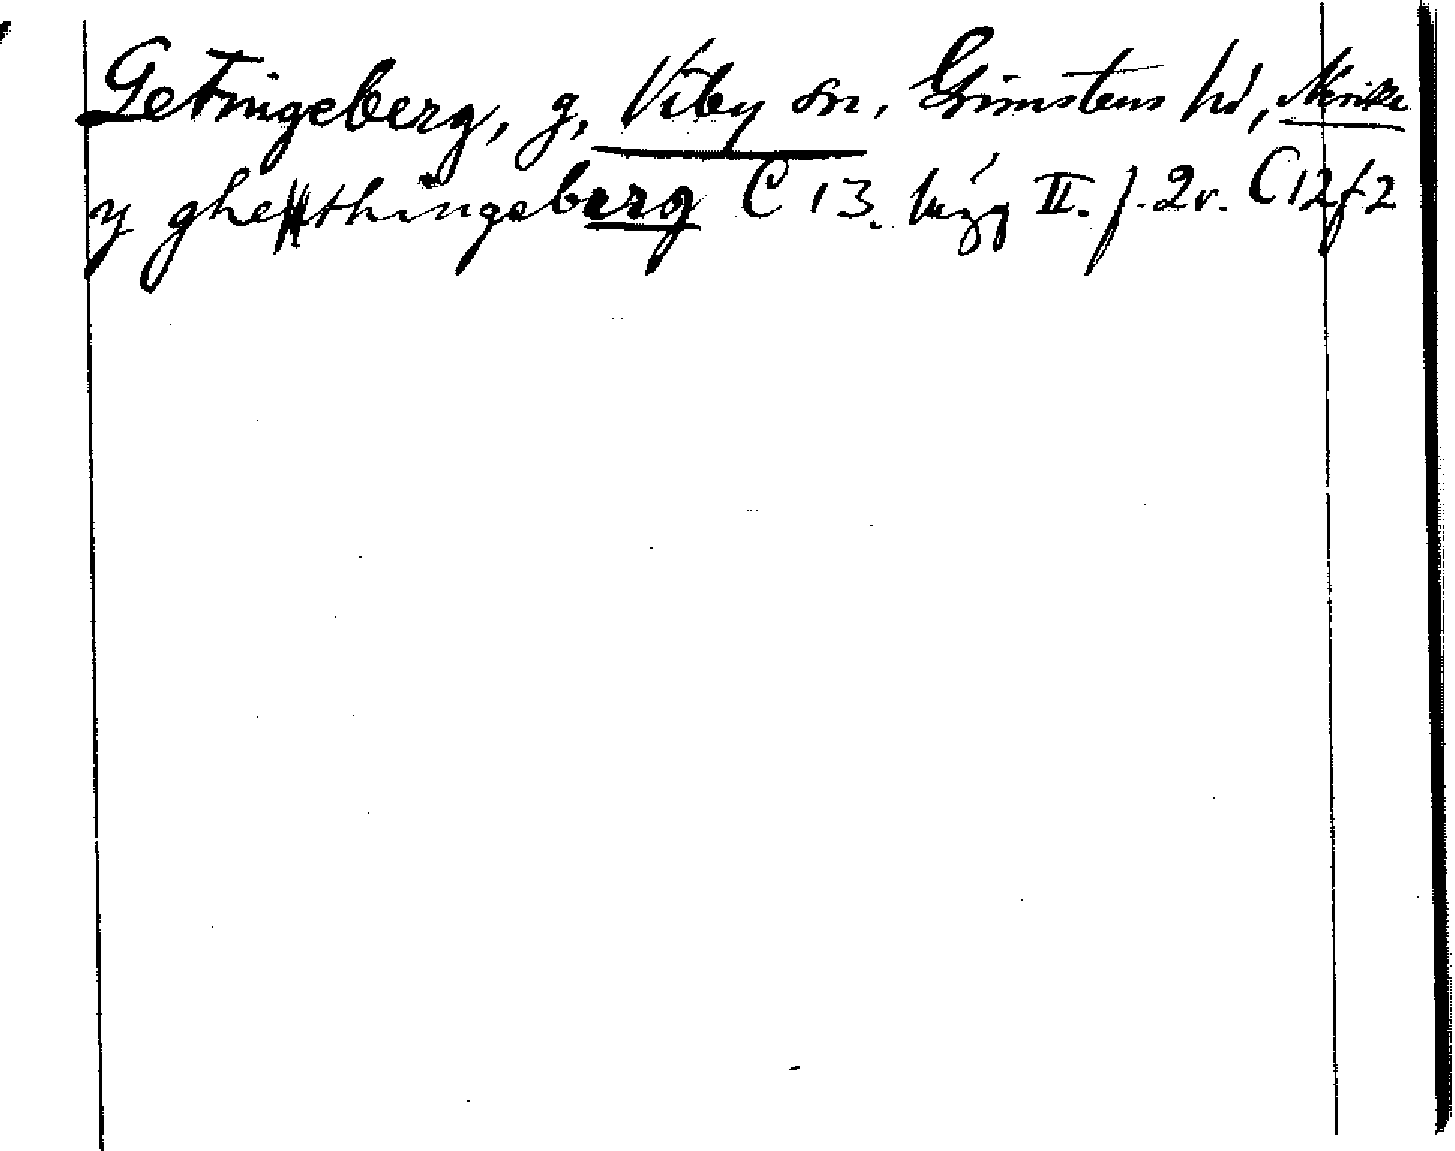 Getingeberg, g, Viby sn. Grimstens hd, Nerike
y ghethingeberg C 13. lägg II. f. 2v. C12 f 2